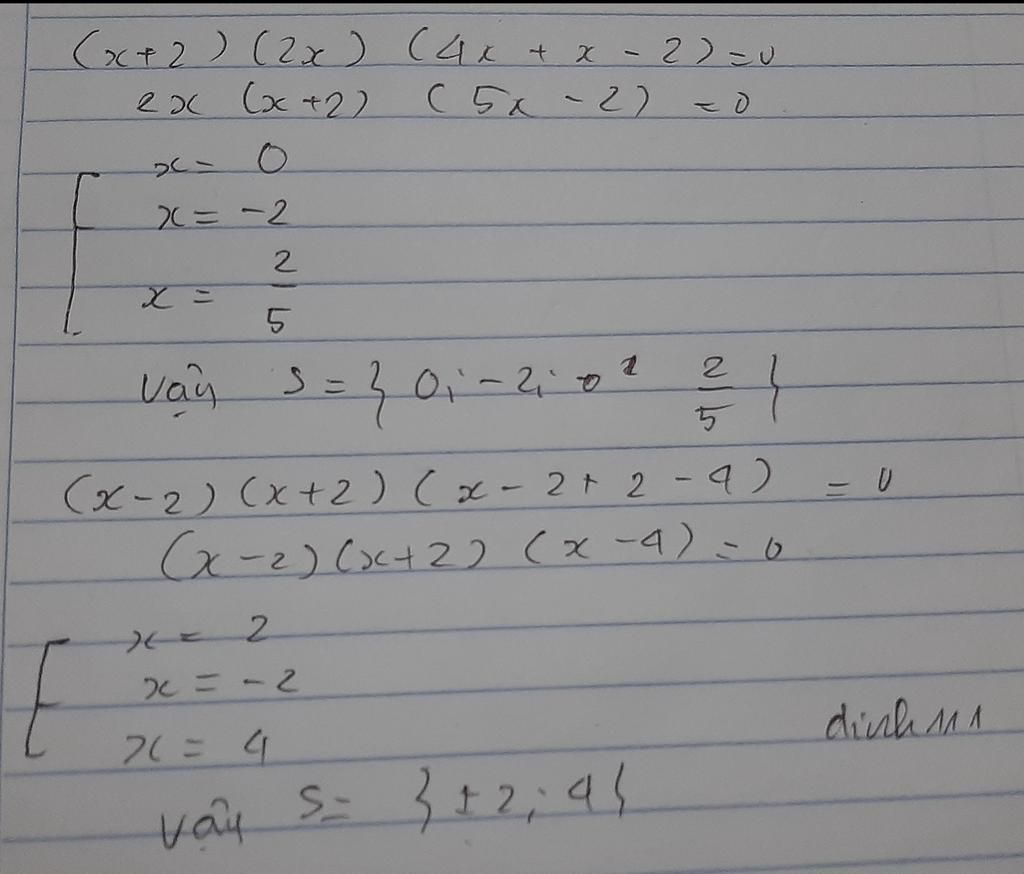 (x+2) (2x) (4x + x - 2) = 0
2x (x+2) (5x - 2) = 0
x = 0
x = -2
x = 2/5
Vậy S = { 0; -2; 2/5 }
(x-2) (x+2) (x - 2 + 2 - 4) = 0
(x-2) (x+2) (x - 4) = 0
x = 2
x = -2
x = 4
dinh111
Vậy S = { ±2; 4 }